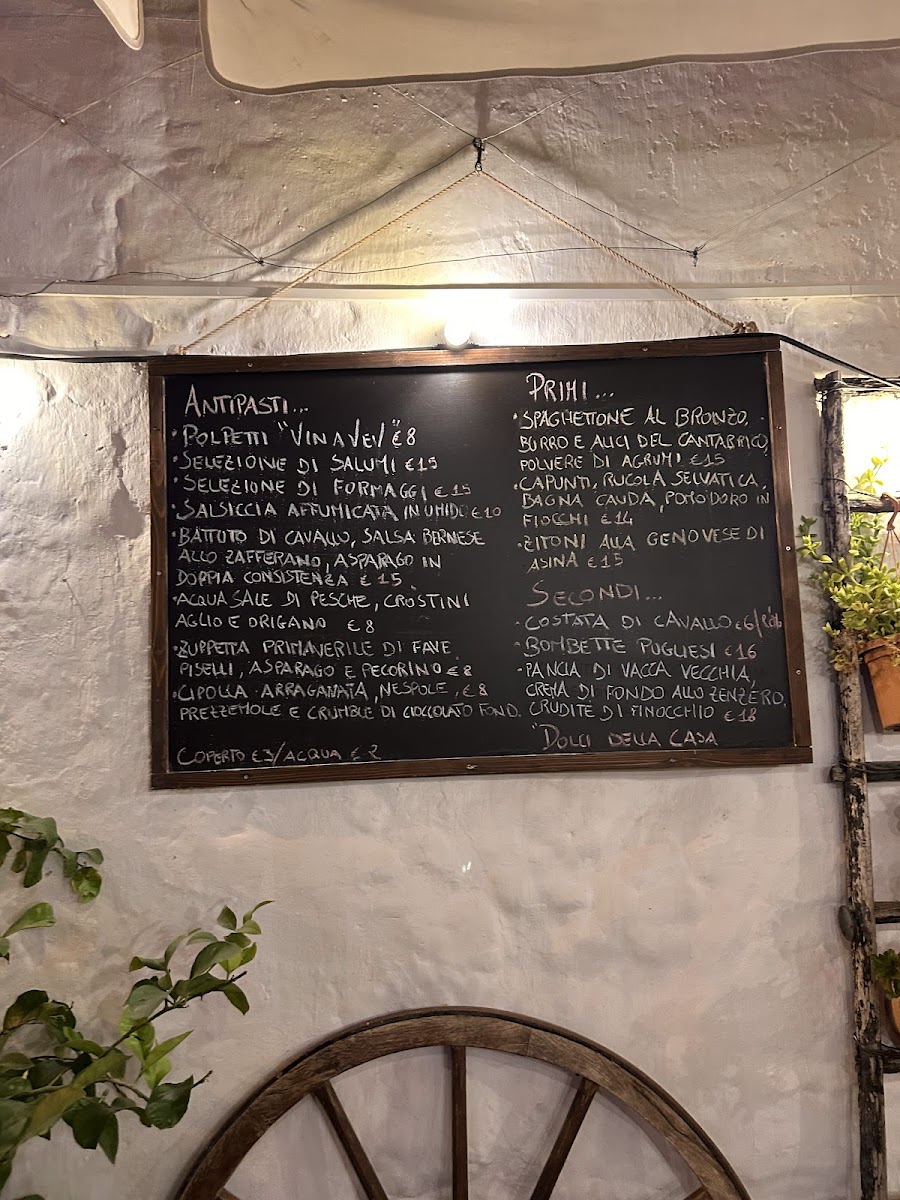 ANTIPASTI...
• POLPETTI "VINAVEV" €8
• SELEZIONE DI SALUMI €15
• SELEZIONE DI FORMAGGI €15
• SALSICCIA AFFUMICATA IN UMIDO €10
• BATTUTO DI CAVALLO, SALSA BERNESE
ALLO ZAFFERANO, ASPARAGO IN
DOPPIA CONSISTENZA €15
• ACQUASALE DI PESCHE, CROSTINI
AGLIO E ORIGANO €8
• ZUPPETTA PRIMAVERILE DI FAVE
PISELLI, ASPARAGO E PECORINO €8
• CIPOLLA ARRAGANATA, NESPOLE, €8
PREZZEMOLE E CRUMBLE DI CIOCCOLATO FOND.
COPERTO €3/ACQUA €2
PRIMI...
• SPAGHETTONE AL BRONZO,
BURRO E ALICI DEL CANTABRICO,
POLVERE DI AGRUMI €15
• CAPUNTI, RUCOLA SELVATICA,
BAGNA CAUDA, POMODORO IN
FIOCCHI €14
• ZITONI ALLA GENOVESE DI
ASINA €15
SECONDI...
• COSTATA DI CAVALLO €6/
• BOMBETTE PUGLIESI €16
• PANCIA DI VACCA VECCHIA,
CREMA DI FONDO ALLO ZENZERO,
CRUDITÈ DI FINOCCHIO €18
"DOLCI DELLA CASA